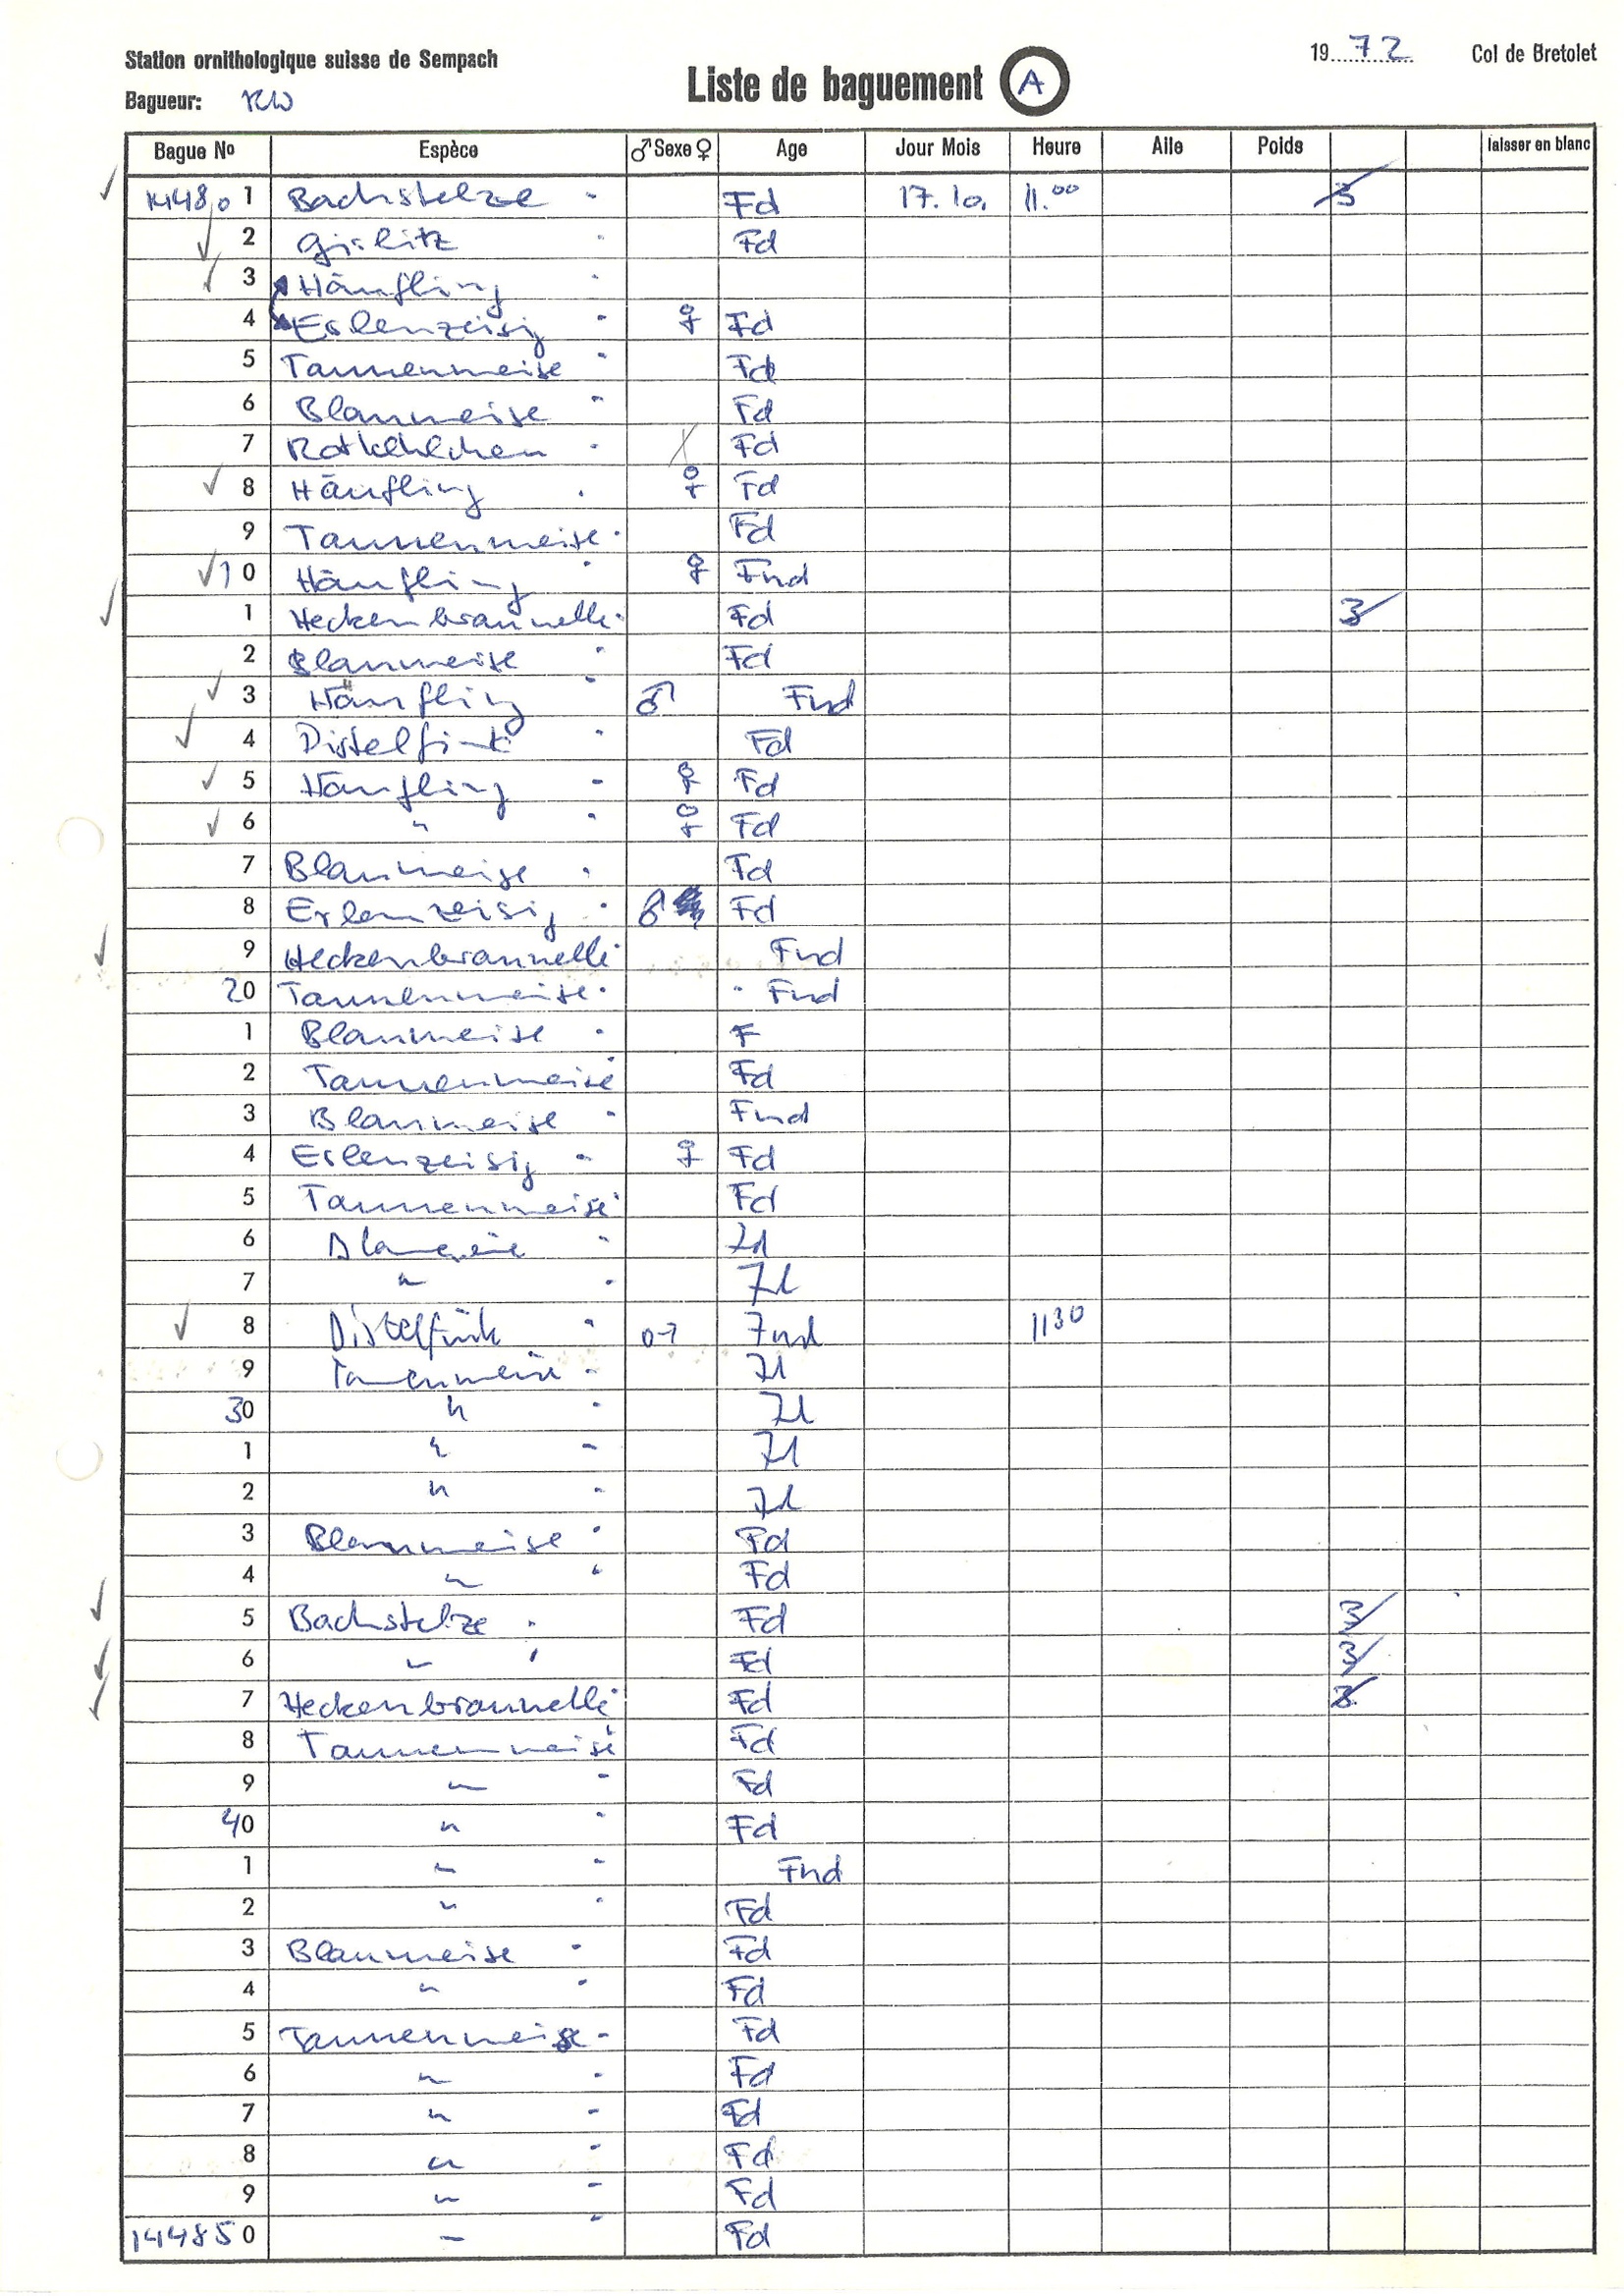 Station ornithologique suisse de Sempach
Bagueur: RW
Liste de baguement A
19 72 Col de Bretolet
Bague No Espèce ♂ Sexe ♀ Age Jour Mois Heure Aile Poids laisser en blanc
144801 Bachstelze Fd 17. 10. 11.00 3
2 Girlitz Fd
3 Hänfling
4 Erlenzeisig ♀ Fd
5 Tannenmeise Fd
6 Blaumeise Fd
7 Rotkehlchen Fd
8 Hänfling ♀ Fd
9 Tannenmeise Fd
10 Hänfling ♀ Fnd
1 Heckenbraunelle Fd 3
2 Blaumeise Fd
3 Hänfling ♂ Fnd
4 Distelfink Fd
5 Hänfling ♀ Fd
6 " ♀ Fd
7 Blaumeise Fd
8 Erlenzeisig ♂ Fd
9 Heckenbraunelle Fnd
20 Tannenmeise Fnd
1 Blaumeise F
2 Tannenmeise Fd
3 Blaumeise Fnd
4 Erlenzeisig ♀ Fd
5 Tannenmeise Fd
6 Blaumeise Fd
7 " Fd
8 Distelfink ♂ Fnd 1130
9 Tannenmeise Fd
30 " Fd
1 " Fd
2 " Fd
3 Blaumeise Fd
4 " Fd
5 Bachstelze Fd 3
6 " Fd 3
7 Heckenbraunelle Fd 3
8 Tannenmeise Fd
9 " Fd
40 " Fd
1 " Fnd
2 " Fd
3 Blaumeise Fd
4 " Fd
5 Tannenmeise Fd
6 " Fd
7 " Fd
8 " Fd
9 " Fd
144850 " Fd